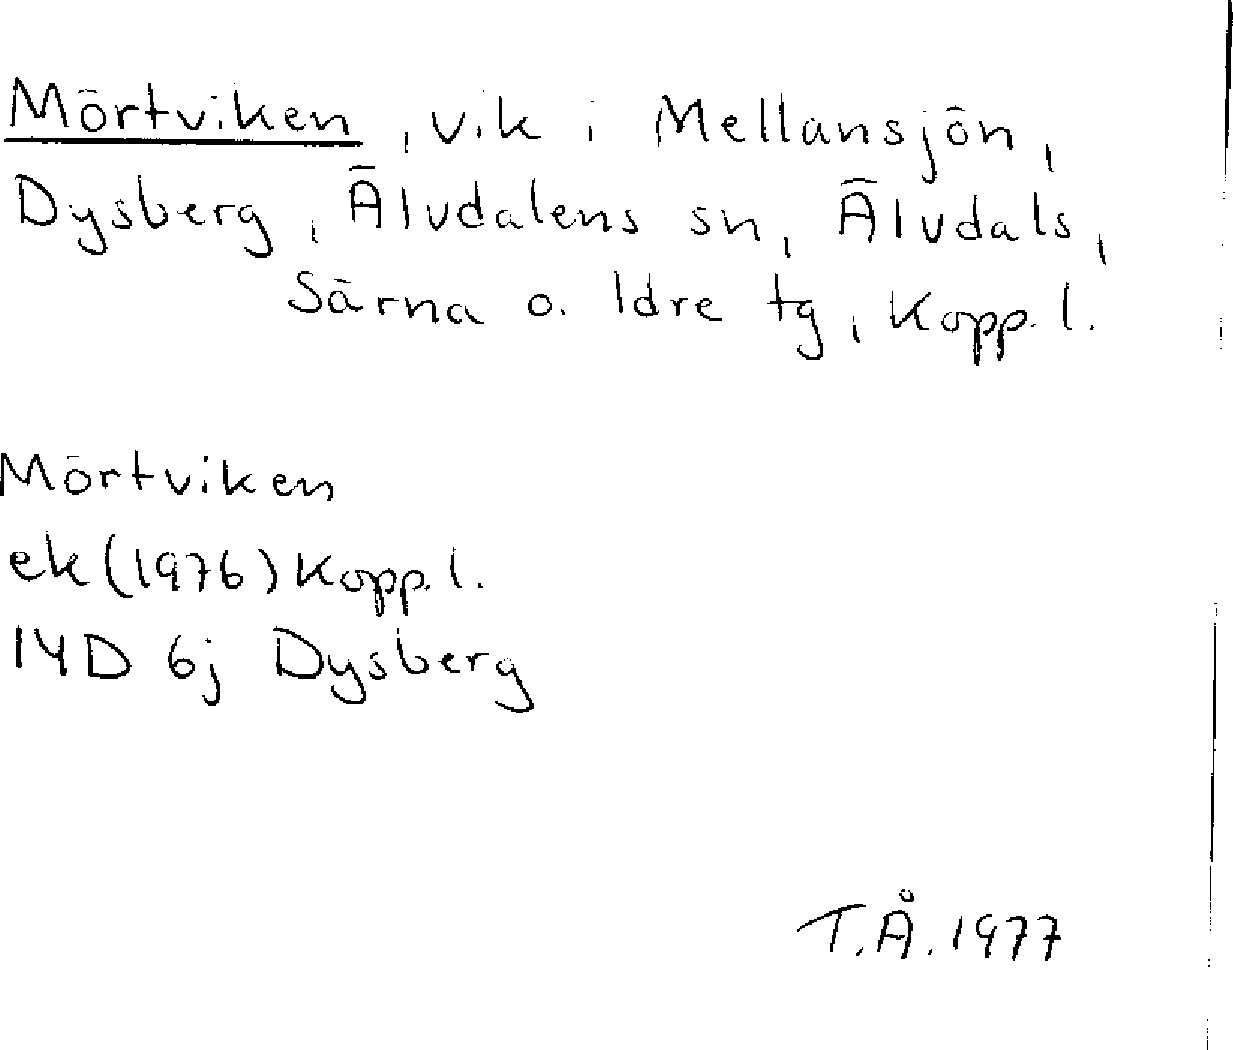 Mörtviken, vik i Mellansjön,
Dysberg, Älvdalens sn, Älvdals,
Särna o. Idre tg, Kopp. l.
Mörtviken
ek (1976) Kopp. l.
14D 6j Dysberg
T.Å. 1977